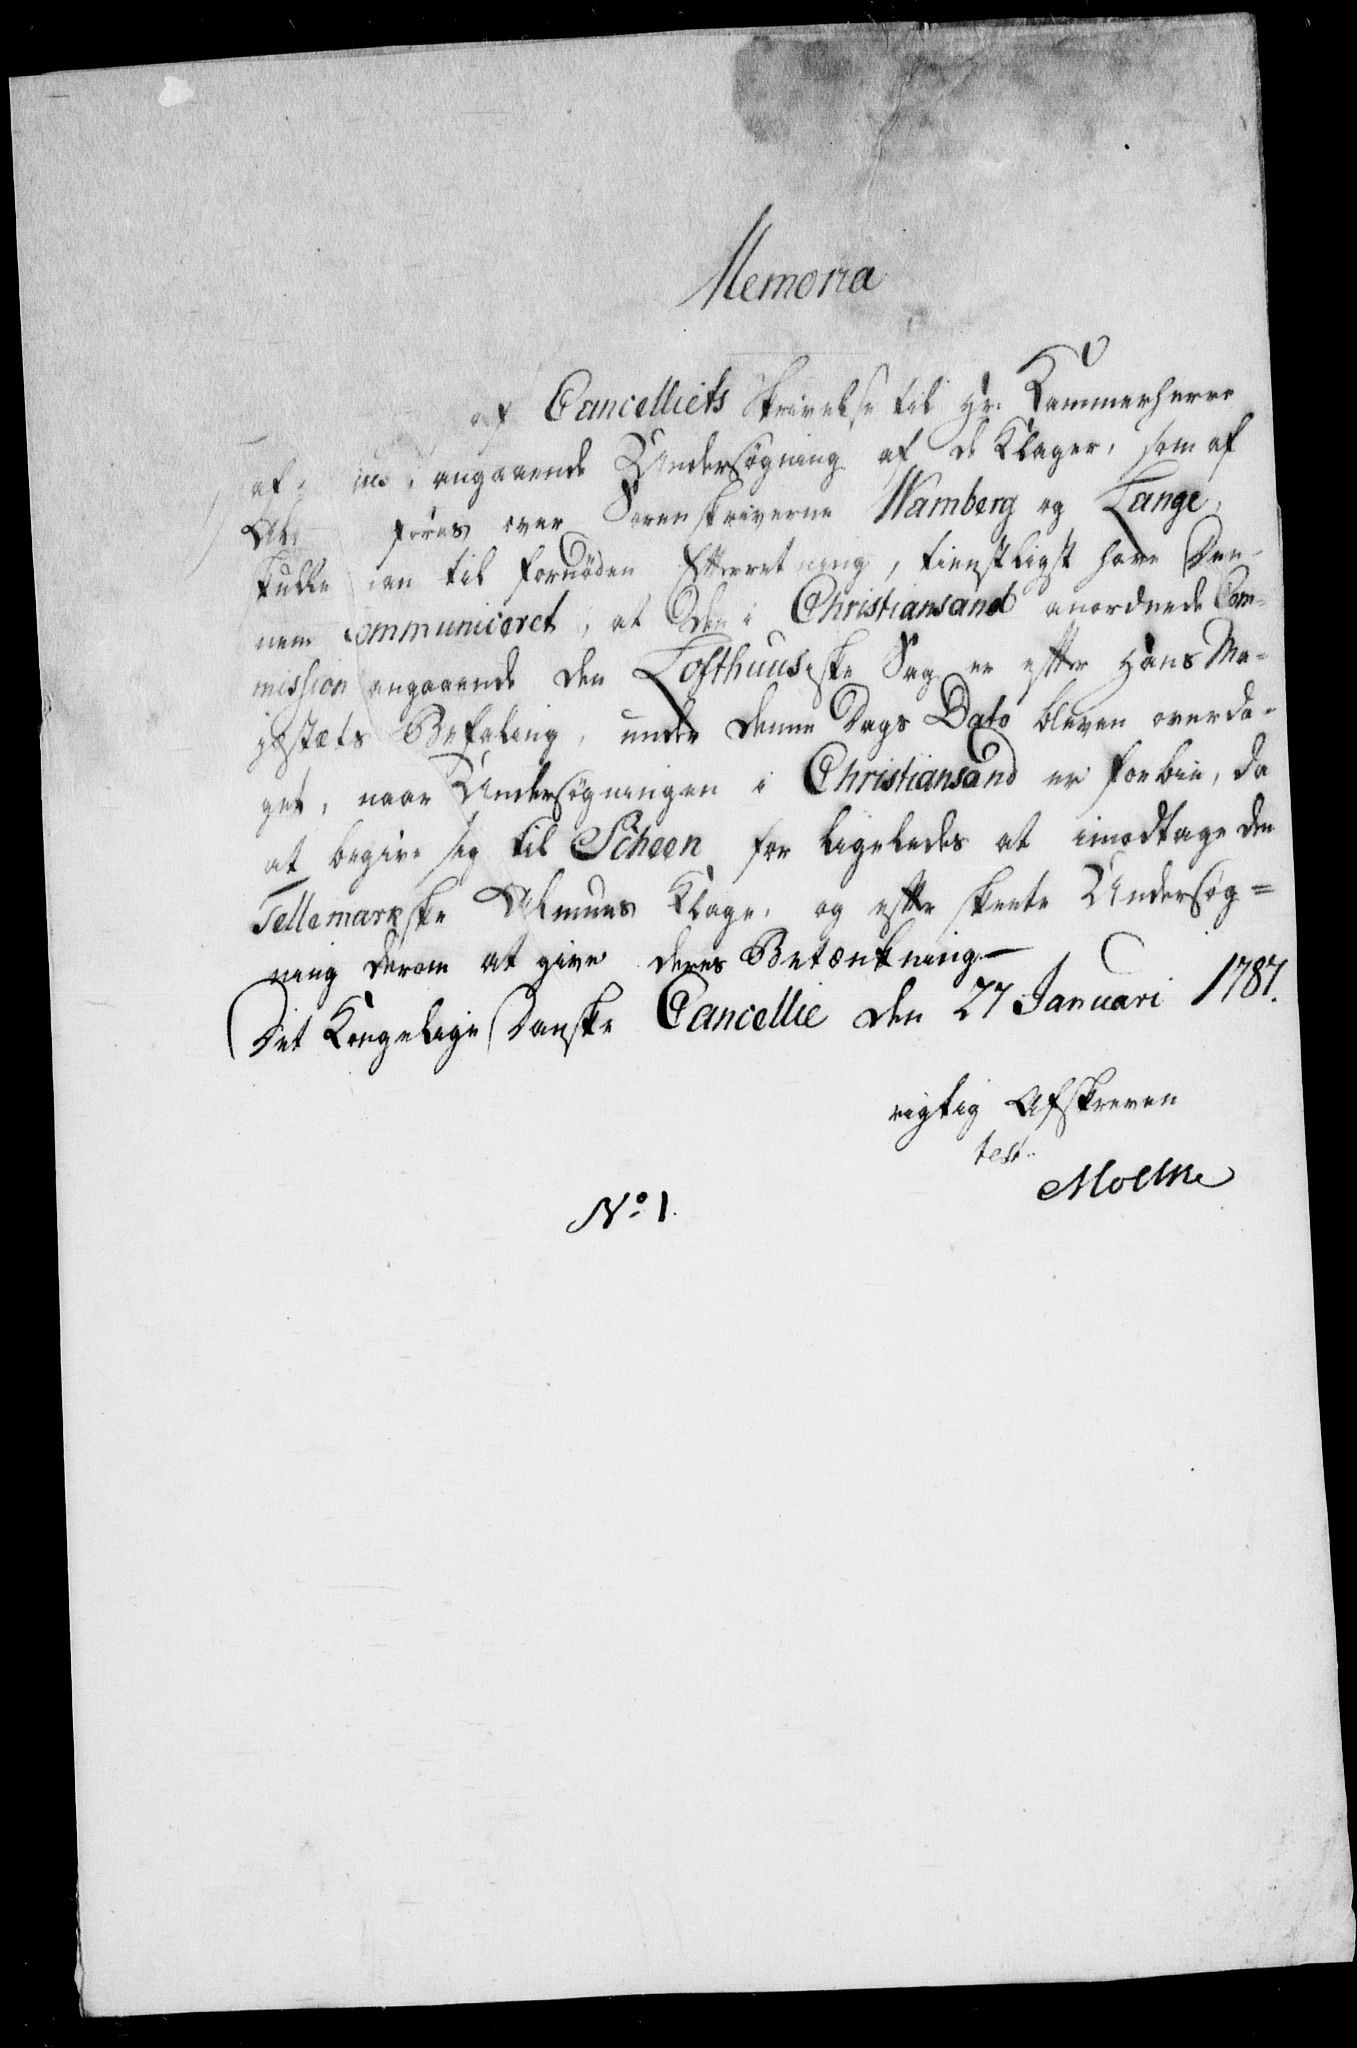 Memoria
af Cancelliets Skrivelse til Hr. Kammerherre
af angaaende Undersøgning af de Klager, som af
føres over Sorenskriverne Wamberg og Lange,
skulle man til fornøden Efterretning, tienstligst have Den-
nem communiceret, at den i Christiansand anordnede Com-
mission angaaende den Lofthuusiske Sag er efter Hans Ma-
jestæts Befaling, under denne Dags Dato bleven overdra-
get, naar Undersøgningen i Christiansand er forbie, da
at begive sig til Scheen for ligeledes at imodtage den
Tellemarkske Almues Klage, og efter skeete Undersøg=
ning derom at give deres Betænkning.—
Det Kongelige Danske Cancellie den 27 Januari 1787.
rigtig Afskreven
test.
Moltke
No. 1.